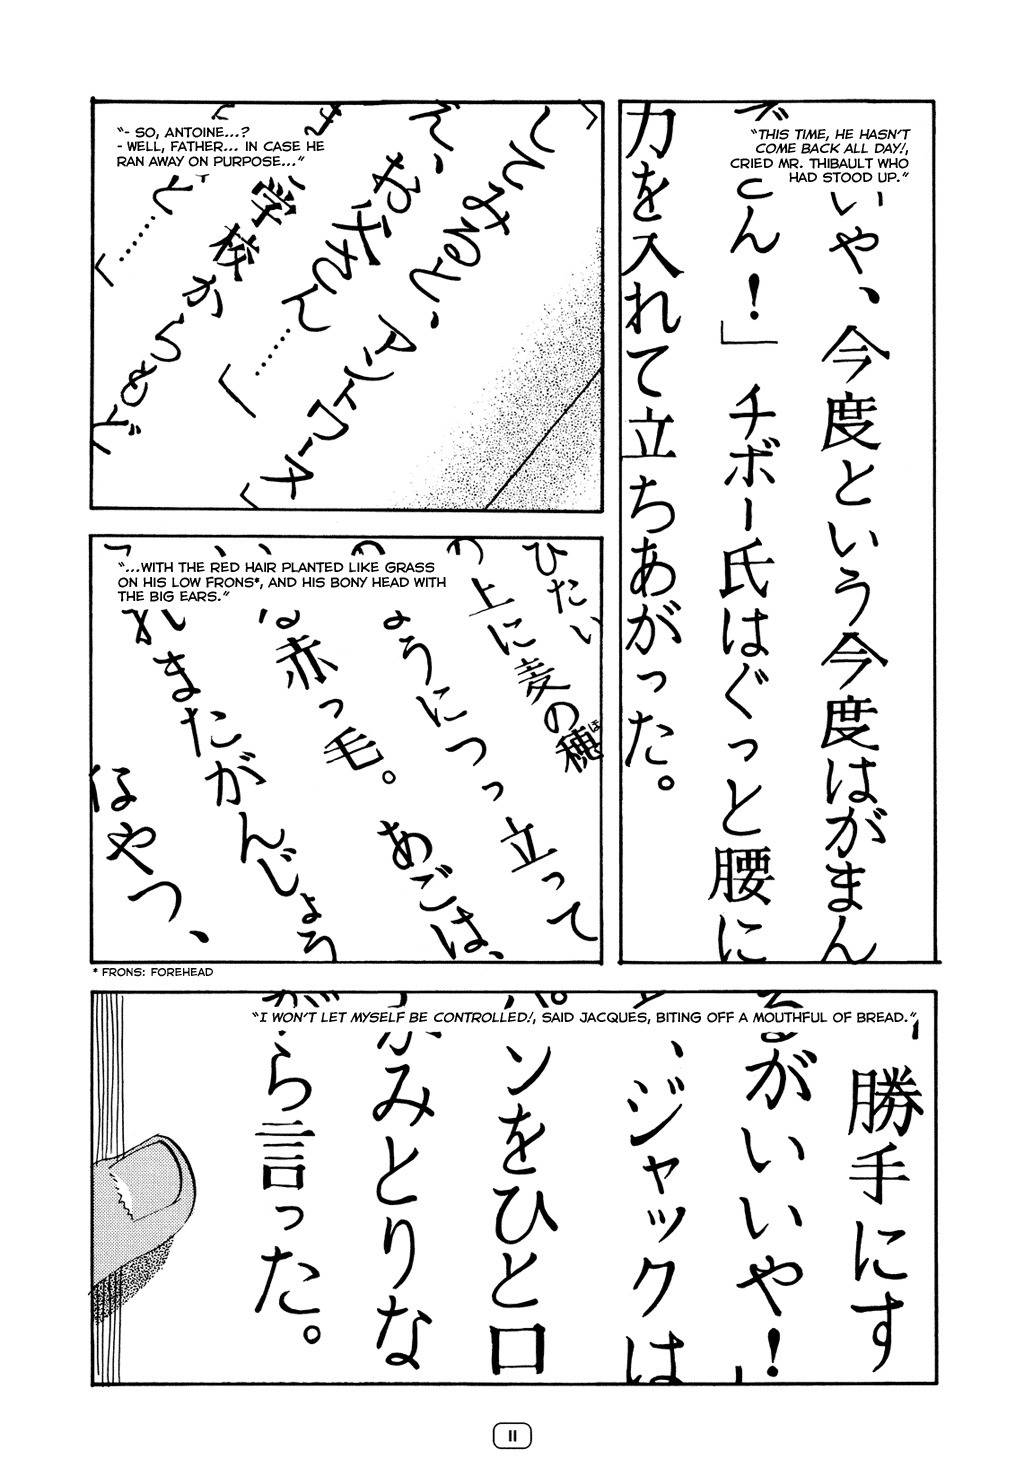 いや、今度という今度はがまん
さん！」チボー氏はぐっと腰に
力を入れて立ちあがった。
"THIS TIME, HE HASN'T
COME BACK ALL DAY!,
CRIED MR. THIBAULT WHO
HAD STOOD UP."
"- SO, ANTOINE...?
- WELL, FATHER... IN CASE HE
RAN AWAY ON PURPOSE..."
してみると、アントワーヌ
お父さん……」
学校からもど
と……
ひたい
の上に麦の穂
ほ
ようにつっ立って
赤っ毛。あごは、
またがんじょう
なやつ、
"...WITH THE RED HAIR PLANTED LIKE GRASS
ON HIS LOW FRONS*, AND HIS BONY HEAD WITH
THE BIG EARS."
* FRONS: FOREHEAD
"I WON'T LET MYSELF BE CONTROLLED!, SAID JACQUES, BITING OFF A MOUTHFUL OF BREAD."
「勝手にす
るがいいや！」
、ジャックは
パンをひと口
かみとりな
がら言った。
11